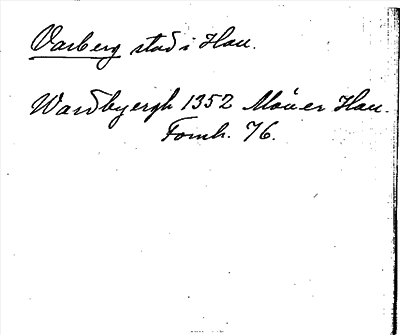 Varberg stad i Hall.
Wardbyergh 1352 Möller Hall.
Fornh. 76.